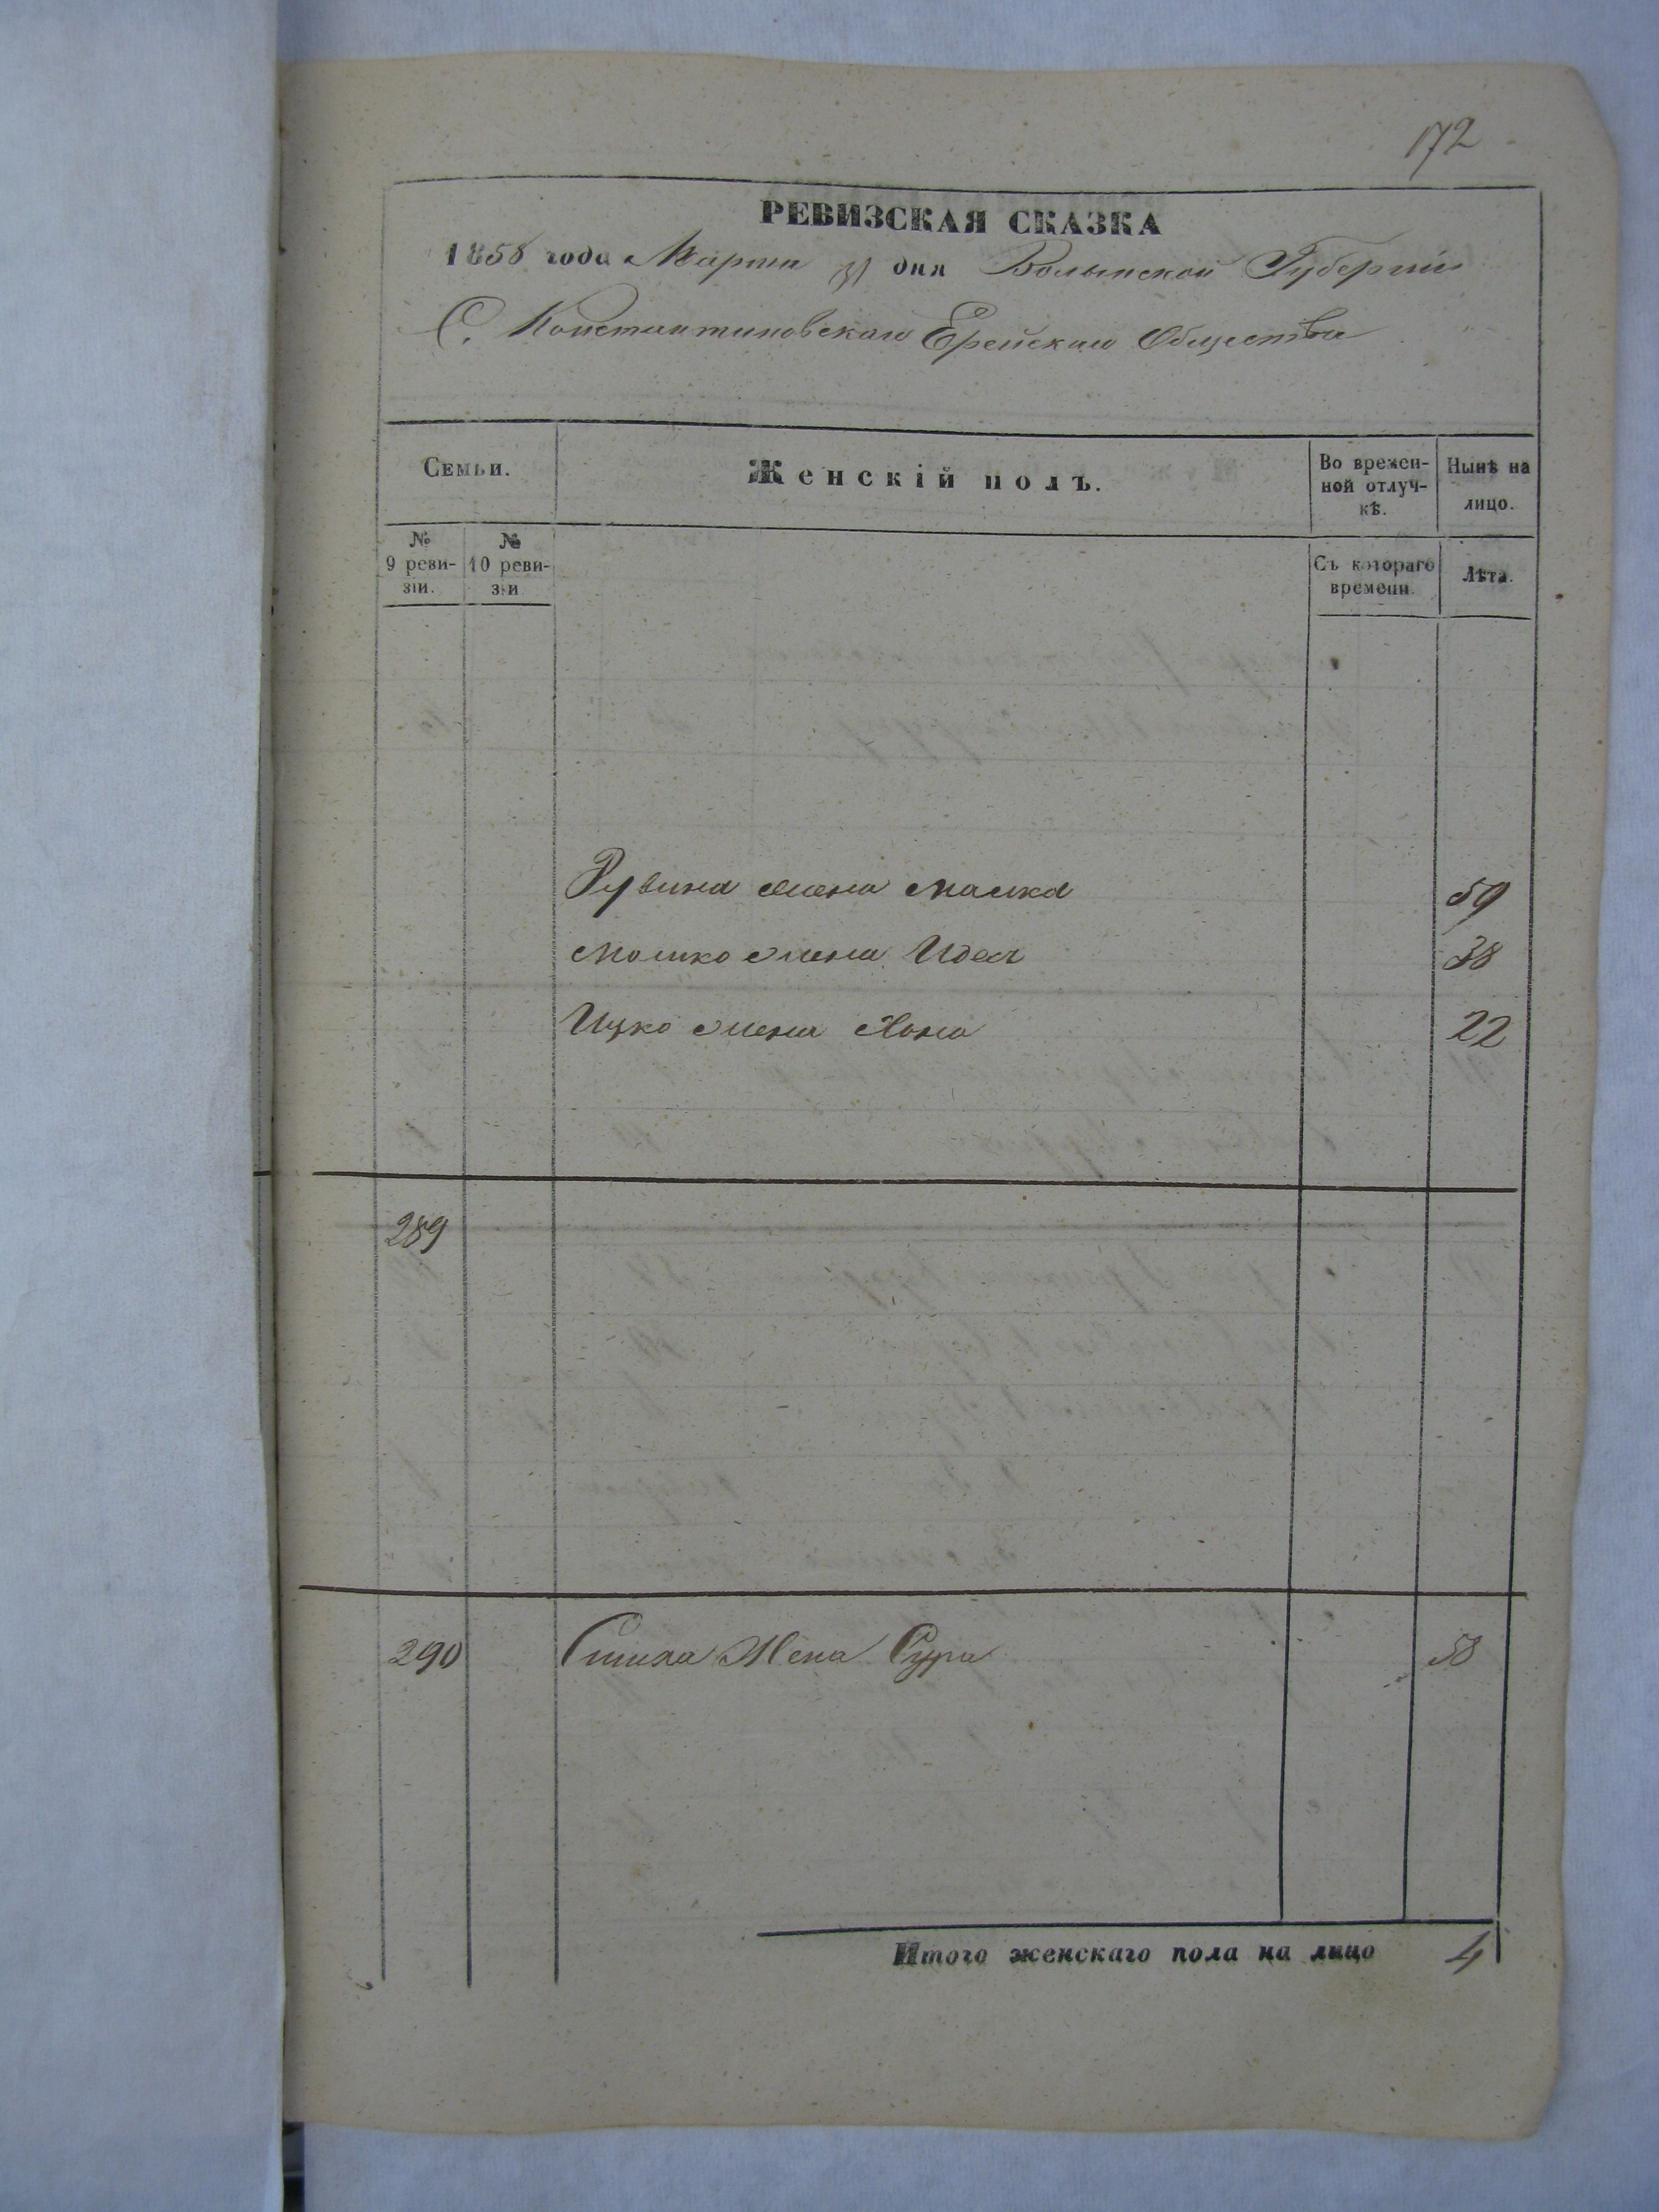 172
РЕВИЗСКАЯ СКАЗКА
1858 года Марта 31 дня Волынской Губернии
С. Константиновскаго Ерейскаго Общества
Семьи.
Женскій полъ.
Во времен-
ной отлуч-
кѣ.
Нынѣ на
лицо.
№
9 реви-
зіи.
№
10 реви-
зіи
Съ котораго
времени.
Лѣта.
Рувина жена Малка 59
Мошко жена Идес 38
Ицко жена Хана 22
289
290 жена Сура 58
Итого женскаго пола на лицо 4